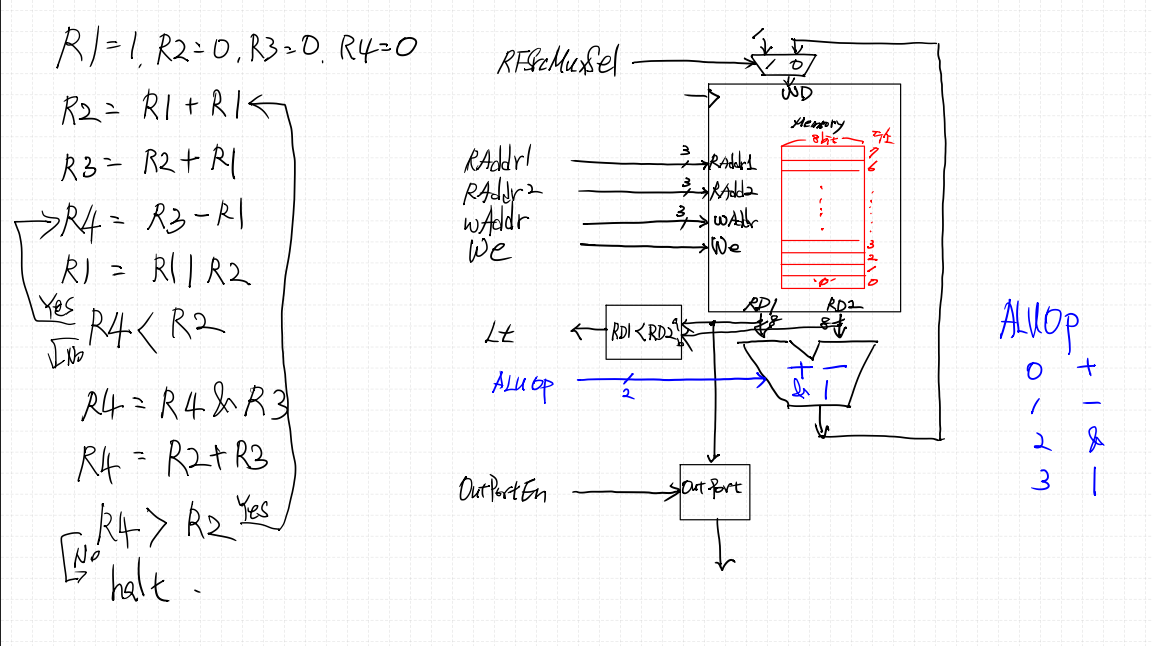 R1=1, R2=0, R3=0, R4=0
R2 = R1 + R1
R3 = R2 + R1
R4 = R3 - R1
R1 = R1 | R2
Yes
R4 < R2
No
R4 = R4 & R3
R4 = R2 + R3
R4 > R2 Yes
No
halt .
RFSrcMuxSel
1
1 0
WD
Memory
8bit
7
6
3
2
1
0
"0"
RAddr1
3
RAddr1
RAddr2
3
RAdd2
wAddr
3
wAddr
We
We
RD1 RD2
8 8
Lt
RD1 < RD2
ALUOp
2
+ -
& |
OutPortEn
OutPort
ALUOp
0 +
1 -
2 &
3 |